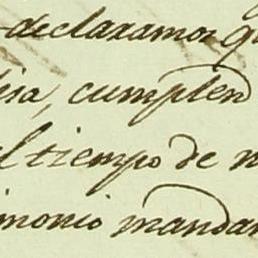 declaramos q
isa, cumplend
el tiempo de n
imonio mandam